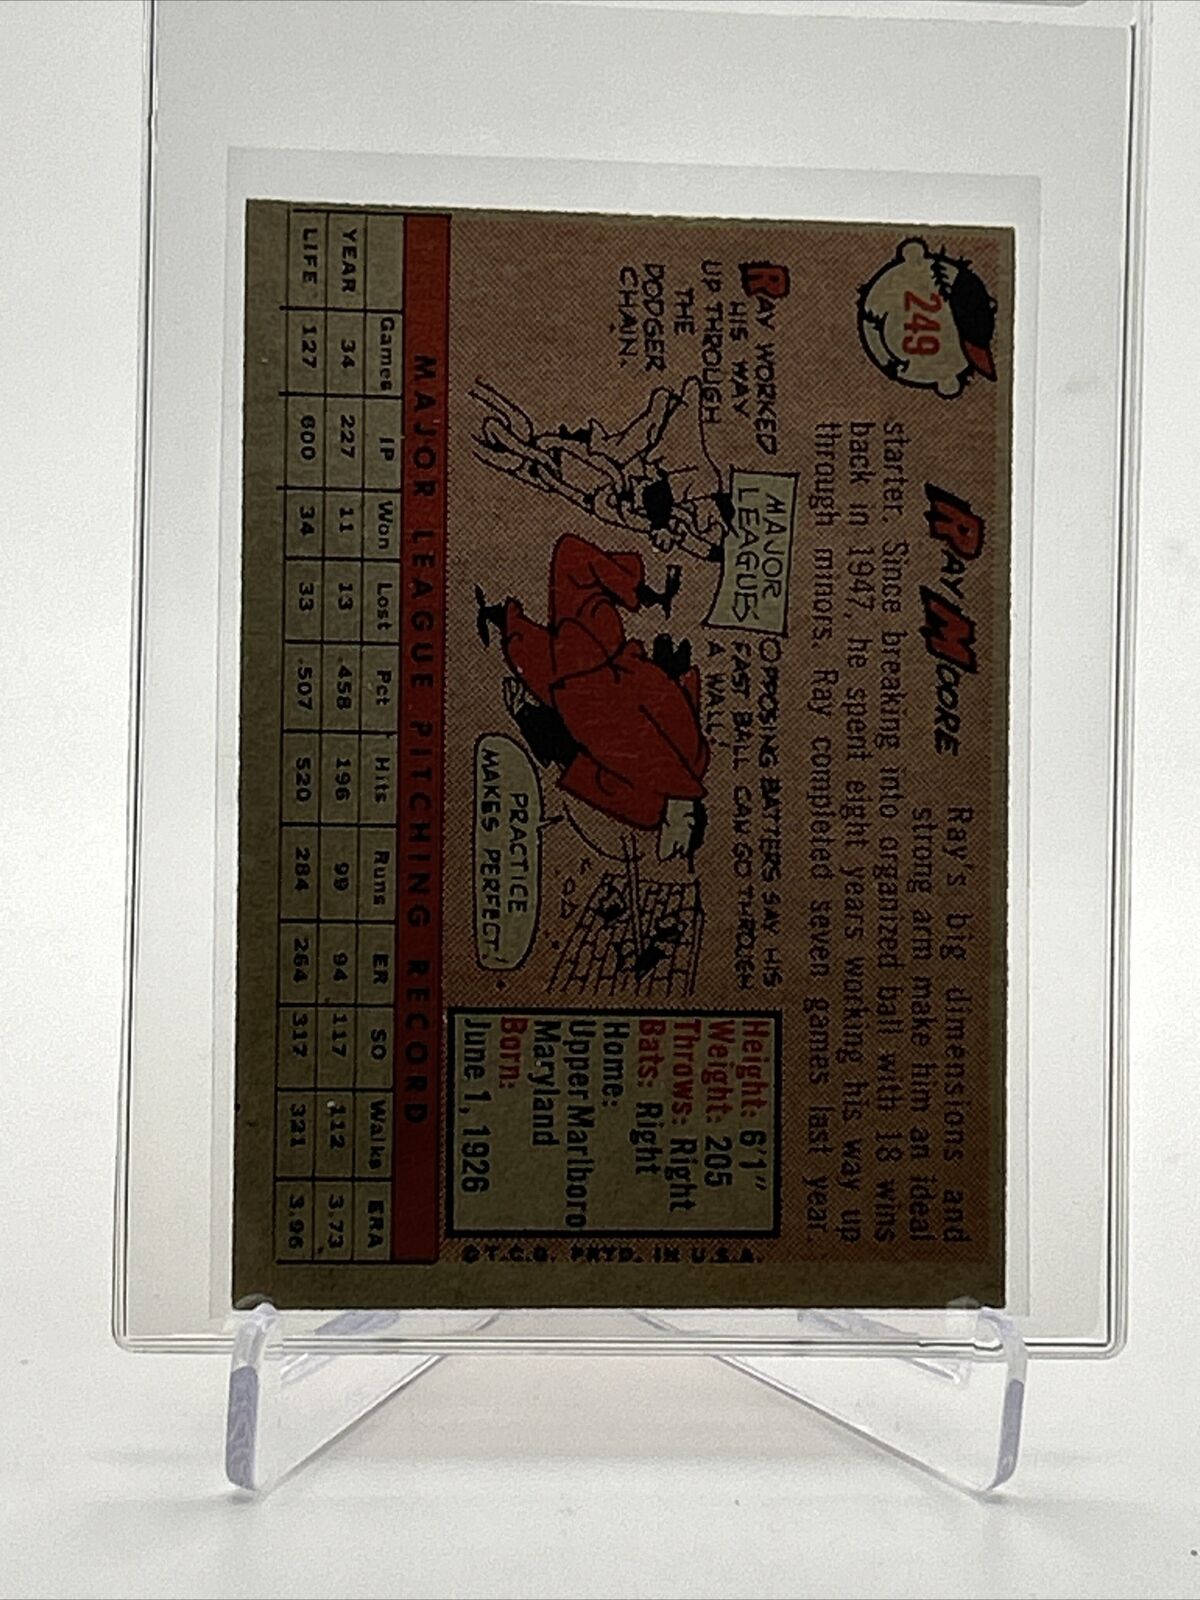 249
RAY MOORE
Ray's big dimensions and
strong arm make him an ideal
starter. Since breaking into organized ball with 18 wins
back in 1947, he spent eight years working his way up
through minors. Ray completed seven games last year.
RAY WORKED
HIS WAY
UP THROUGH
THE
DODGER
CHAIN.
MAJOR
LEAGUES
OPPOSING BATTERS SAY HIS
FAST BALL CAN GO THROUGH
A WALL!
PRACTICE
MAKES PERFECT!
Height: 6'1"
Weight: 205
Throws: Right
Bats: Right
Home:
Upper Marlboro
Maryland
Born:
June 1, 1926
© T.C.G. PRTD. IN U.S.A.
MAJOR LEAGUE PITCHING RECORD
Games IP Won Lost Pct Hits Runs ER SO Walks ERA
YEAR 34 227 11 13 .458 196 99 94 117 112 3.73
LIFE 127 600 34 33 .507 520 284 264 317 321 3.96